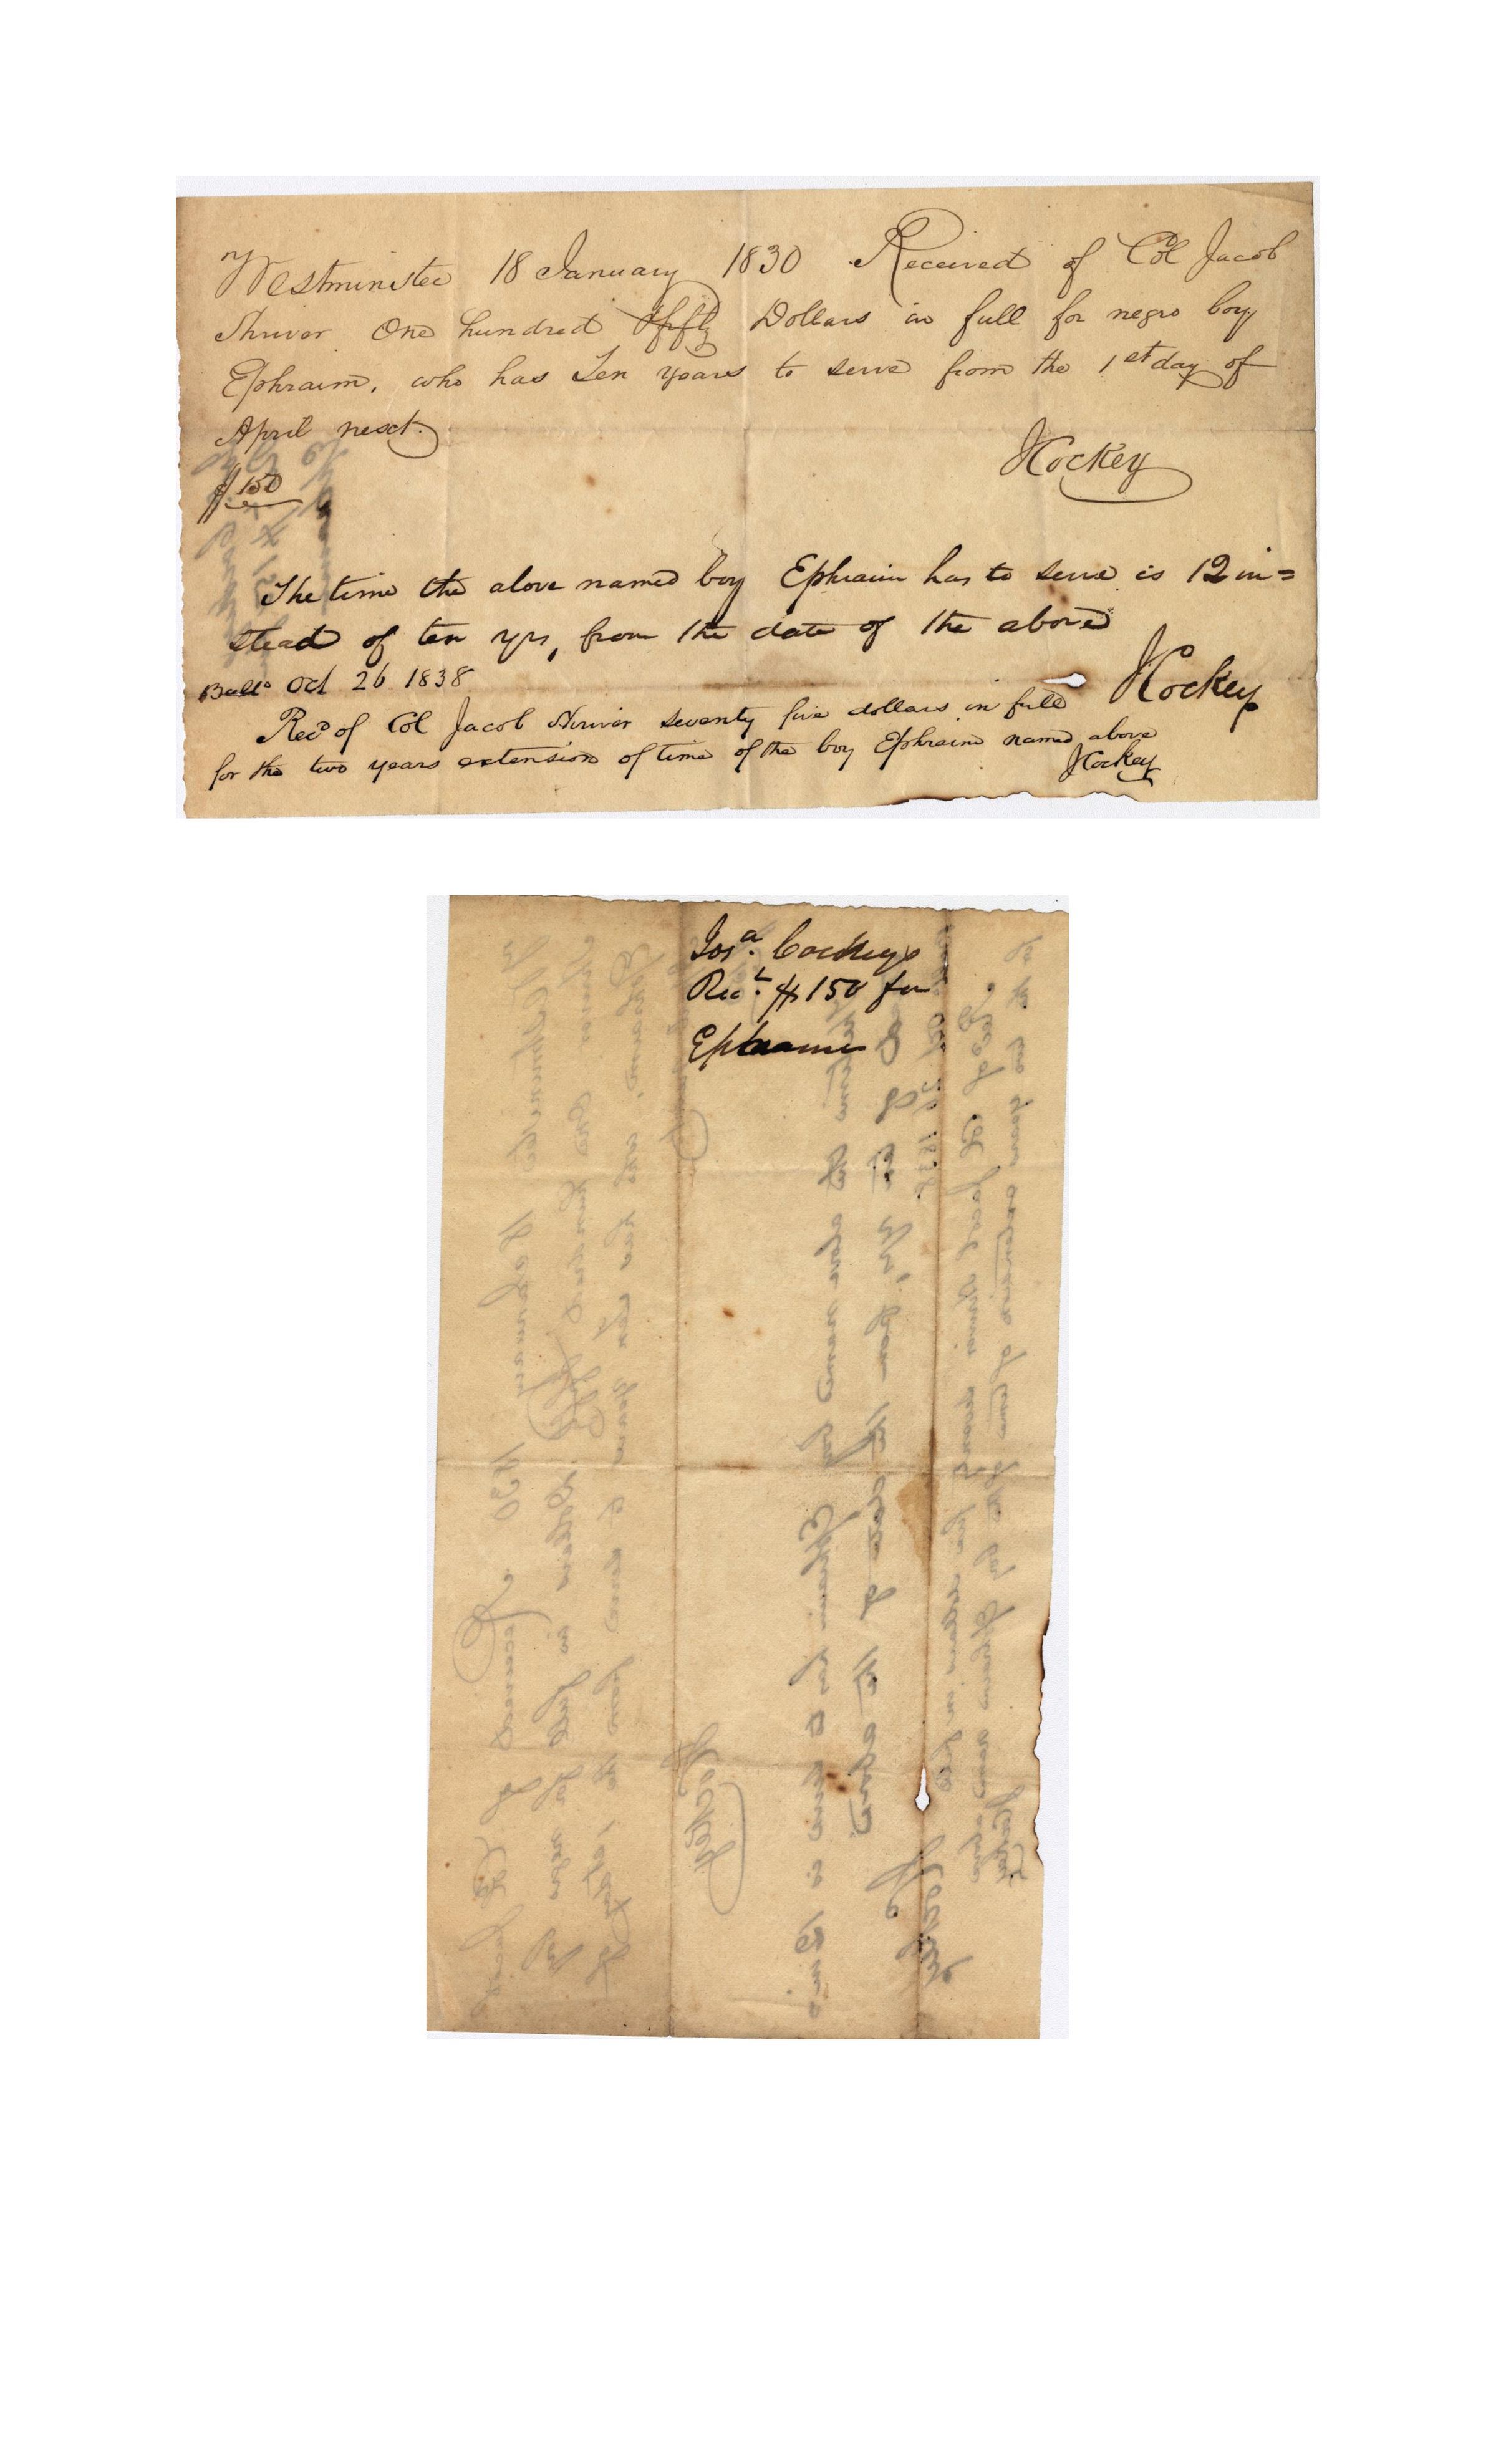 Westminster 18 January 1830 Received of Col Jacob
Shriver One hundred & fifty Dollars in full for negro boy
Ephraim, who has Ten years to serve from the 1st day of
April next.
JCockey
$150
The time the above named boy Ephraim has to serve is 12 in=
stead of ten yrs, from the date of the above
JCockey
Balto Oct 26 1838
Recd of Col Jacob Shriver seventy five dollars in full
for the two years extension of time of the boy Ephraim named above
JCockey
Josa. Cockeys
Rect. $150 for
Ephraim